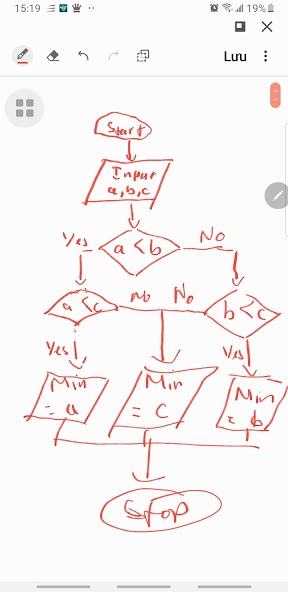 15:19
19%
Lưu
Start
Input
a,b,c
Yes
a < b
No
a < c
No
No
b < c
Yes
Yes
Min
= a
Min
= c
Min
= b
Stop